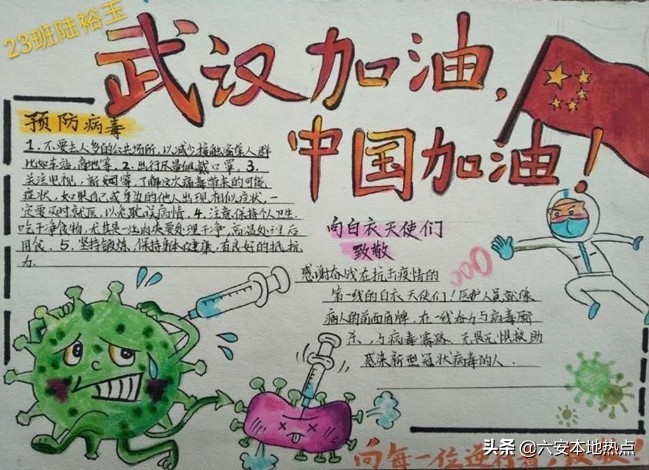 23班陆裕玉
武汉加油,
中国加油!
预防病毒
1.不要去人多的公共场所,以减少接触患病人群
比如车站,商场等,2.出行尽量佩戴口罩,3.
关注电视,新闻等,了解这次病毒带来的可能
症状,如果自己或身边的他人出现相似症状,一
定要及时就医,以免耽误病情,4.注意保持个人卫生
吃干净食物,尤其是肉类要处理干净,高温处理后
用食,5.坚持锻炼,保持身体健康,有良好的抵抗
力.
向白衣天使们
致敬
感谢奋战在抗击疫情的
第一线的白衣天使们!医护人员就像
病人的前面盾牌,在一线奋力与病毒厮
杀,与病毒,无畏无惧救助
感染新型冠状病毒的人.
向每一位
头条 @六安本地热点